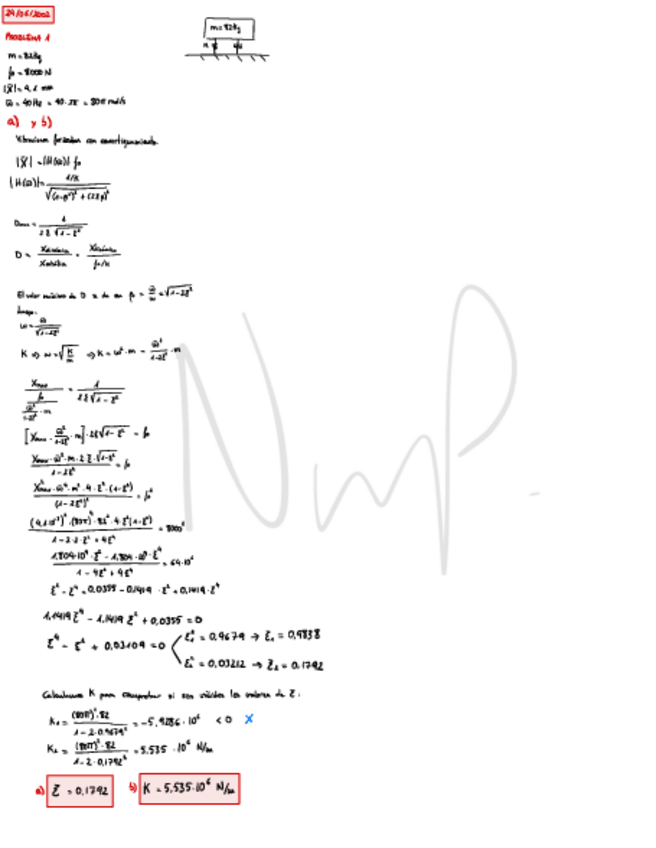 24/06/2002
PROBLEMA 1
m = 82 kg
m = 82 kg
f₀ = 8000 N
|X| = 4,1 mm
ω̄ = 40 Hz = 40·2π = 80π rad/s
a) y b)
Vibraciones forzadas con amortiguamiento
|X| = |H(ω)| f₀
|H(ω)| = (1/K) / √((1-β²)² + (2ξβ)²)
Dmax = 1 / (2ξ√(1-ξ²))
D = Xdinámica / Xestática = Xdinámica / (f₀/K)
El valor máximo de D se da en β = ω̄/ω = √(1-2ξ²)
luego:
ω = ω̄ / √(1-2ξ²)
K ⇒ ω = √(K/m) ⇒ K = ω²·m = ω̄²/(1-2ξ²) · m
Xmax / (f₀ / (ω̄²/(1-2ξ²) · m)) = 1 / (2ξ√(1-ξ²))
[Xmax · ω̄²/(1-2ξ²) · m] · 2ξ√(1-ξ²) = f₀
Xmax · ω̄² · m · 2ξ · √(1-ξ²) / (1-2ξ²) = f₀
X²max · ω̄⁴ · m² · 4 · ξ² · (1-ξ²) / (1-2ξ²)² = f₀²
(4,1·10⁻³)² · (80π)⁴ · 82² · 4·ξ²(1-ξ²) / (1-2·2·ξ² + 4ξ⁴) = 8000²
(1,804·10⁹·ξ² - 1,804·10⁹·ξ⁴) / (1-4ξ²+4ξ⁴) = 64·10⁶
ξ² - ξ⁴ = 0,0355 - 0,1419·ξ² + 0,1419·ξ⁴
1,1419ξ⁴ - 1,1419ξ² + 0,0355 = 0
ξ⁴ - ξ² + 0,03109 = 0
ξ₁² = 0,9679 → ξ₁ = 0,9838
ξ₂² = 0,03212 → ξ₂ = 0,1792
Calculamos K para comprobar si son válidos los valores de ξ:
K₁ = (80π)²·82 / (1-2·0,9679²) = -5,9286·10⁶ < 0 X
K₂ = (80π)²·82 / (1-2·0,1792²) = 5,535·10⁶ N/m
a) ξ = 0,1792 b) K = 5,535·10⁶ N/m
NmP.